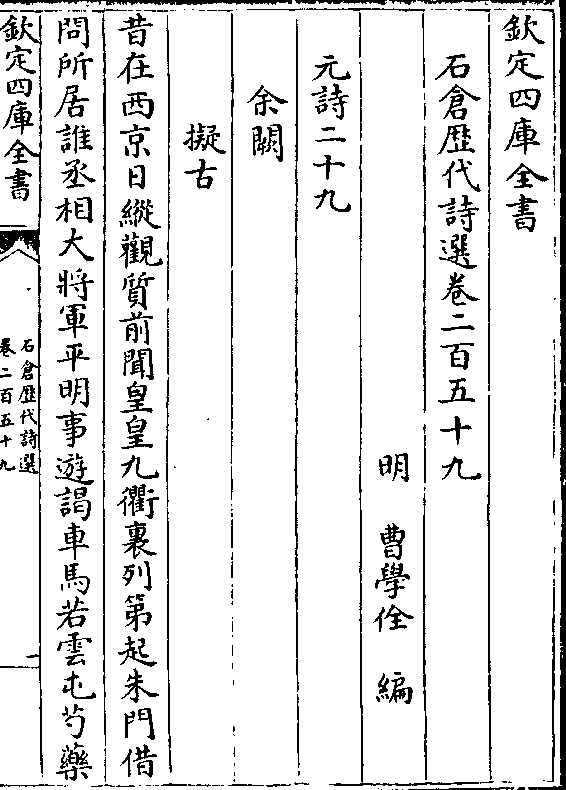 欽定四庫全書
石倉歴代詩選卷二百五十九
明 曹學佺 編
元詩二十九
余闕
擬古
昔在西京日縱觀質前聞皇皇九衢裏列第起朱門借
問所居誰丞相大將軍平明事遊謁車馬若雲屯芍藥
欽定四庫全書
石倉歴代詩選
卷二百五十九
一